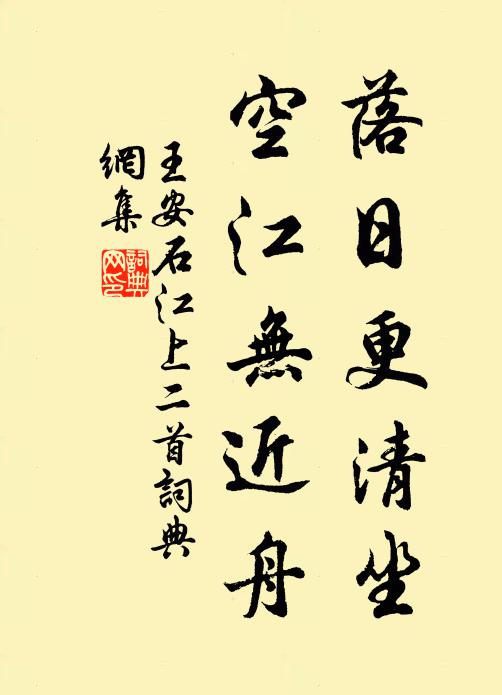 落日更清坐
空江無近舟
王安石江上二首詞典
網集
詞典
网印